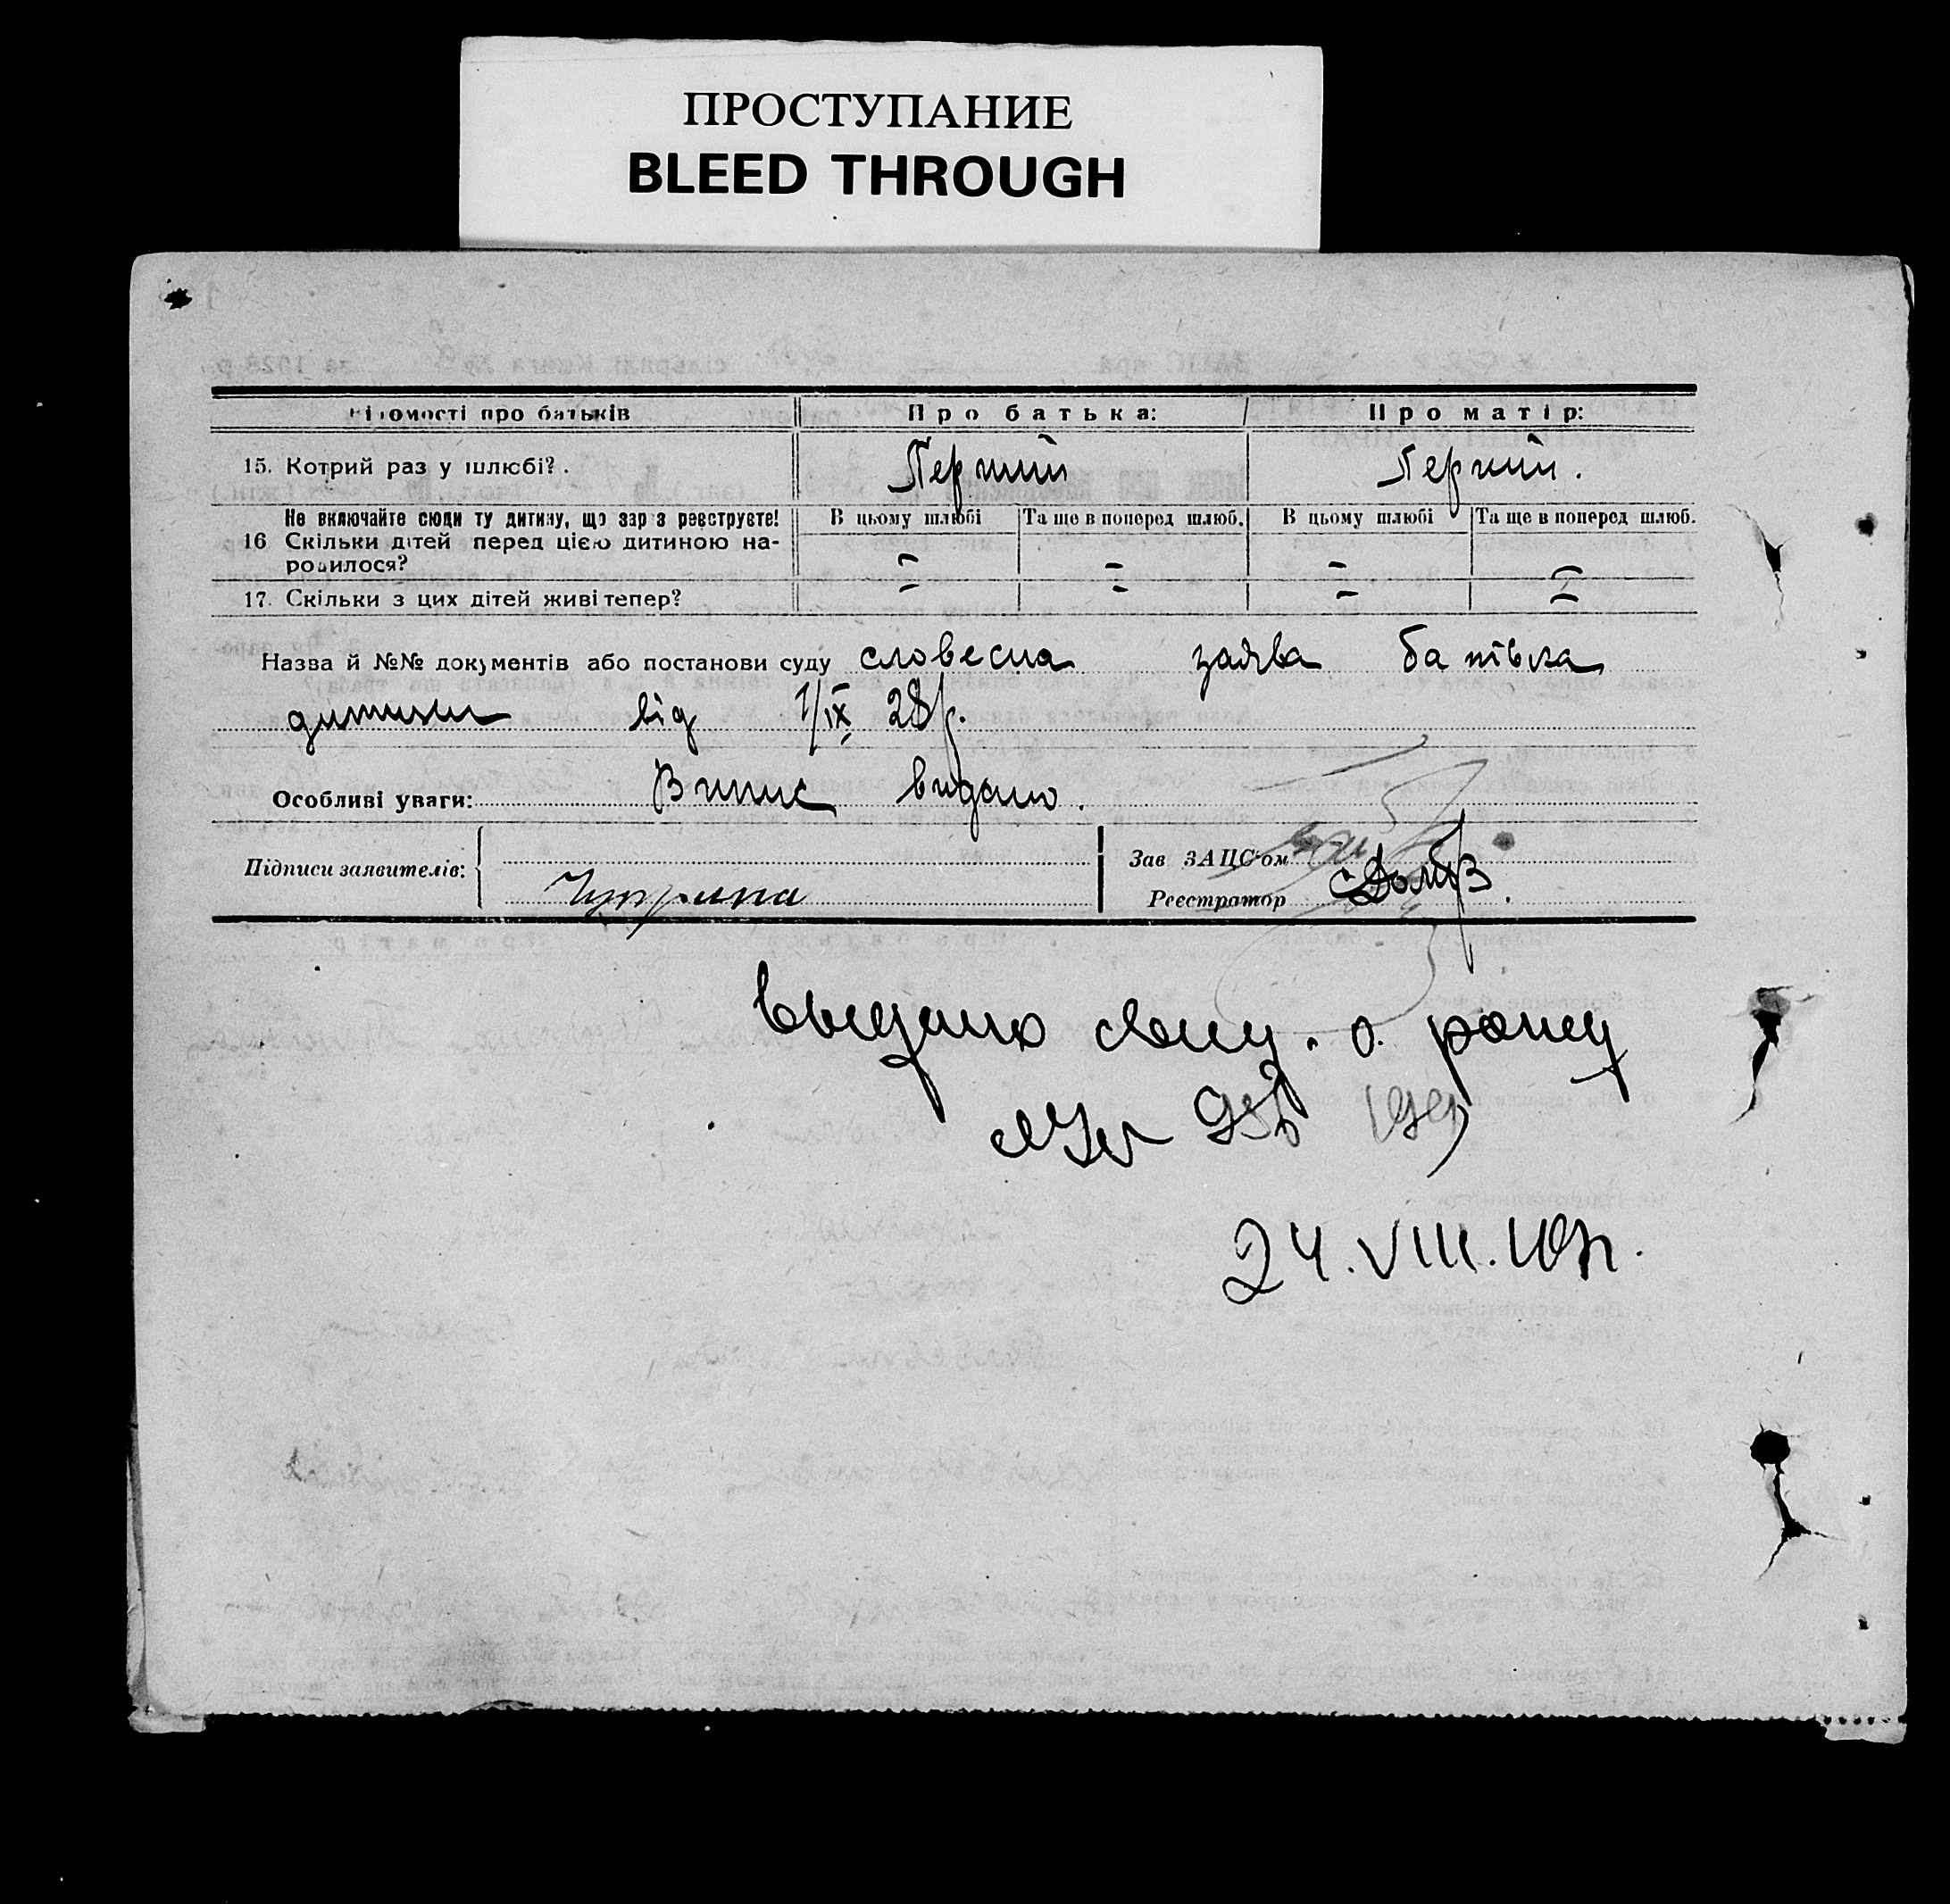 ПРОСТУПАНИЕ
BLEED THROUGH
Відомості про батьків Про батька: Про матір:
15. Котрий раз у шлюбі? . Перший Перший.
Не включайте сюди ту дитину, що зараз реєструєте! В цьому шлюбі Та ще в поперед шлюб. В цьому шлюбі Та ще в поперед шлюб.
16 Скільки дітей перед цією дитиною на-
родилося? – – – –
17. Скільки з цих дітей живі тепер? – – – –
Назва й №№ документів або постанови суду словесна заява батька
дитини від 1/IX 28р.
Особливі уваги: Випис видано.
Підписи заявителів:
Зав ЗАЦС'ом
Реєстратор
Выдано о
24.VIII.